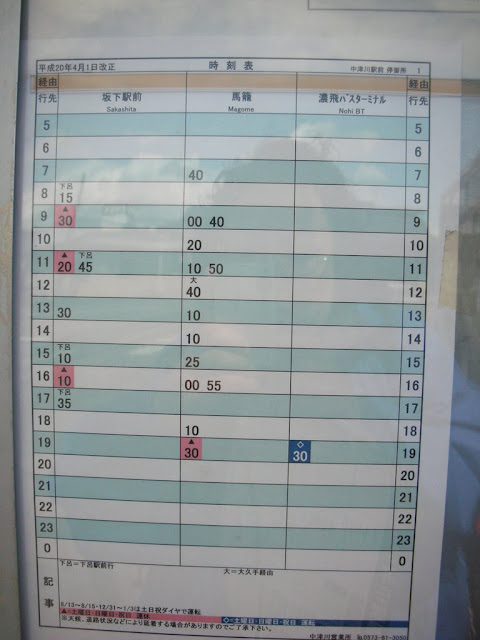 平成20年4月1日改正 時刻表 中津川駅前 停留所 1
経由 経由
行先 坂下駅前 馬籠 濃飛バスターミナル 行先
Sakashita Magome Nohi BT
5 5
6 6
7 40 7
下呂
8 15 8
▲
9 30 00 40 9
10 20 10
▲ 下呂
11 20 45 10 50 11
大
12 40 12
13 30 10 13
14 10 14
下呂
15 10 25 15
▲
16 10 00 55 16
下呂
17 35 17
18 10 18
▲ ◇
19 30 30 19
20 20
21 21
22 22
23 23
0 0
記事
下呂=下呂駅前行 大=大久手経由
8/13~8/15・12/31~1/3は土日祝ダイヤで運転
▲-土曜日・日曜日・祝日 運休 ◇-土曜日・日曜日・祝日 運転
※天候、道路状況などにより延着する場合がありますのでご了承下さい。
中津川営業所